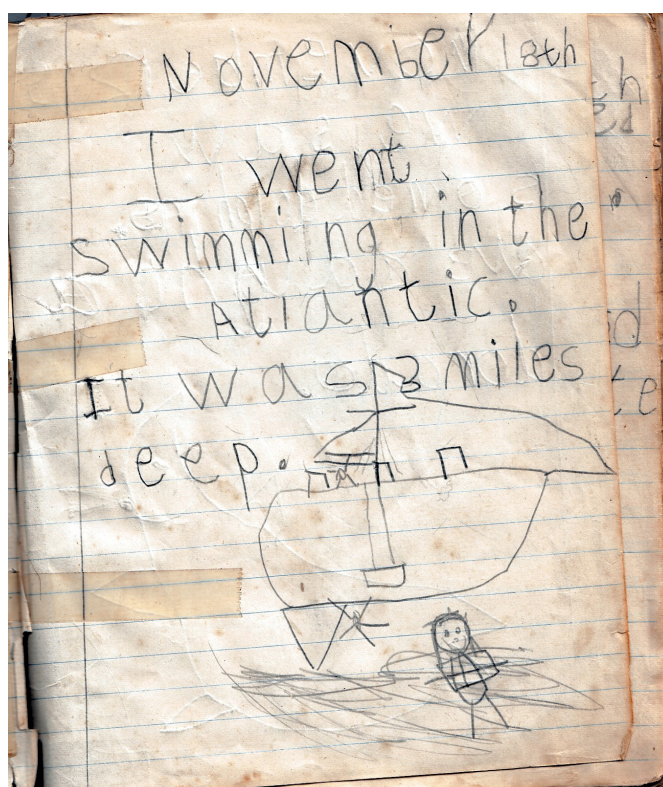 November 18th
I went
swimming in the
Atlantic.
It was 3 miles
deep.